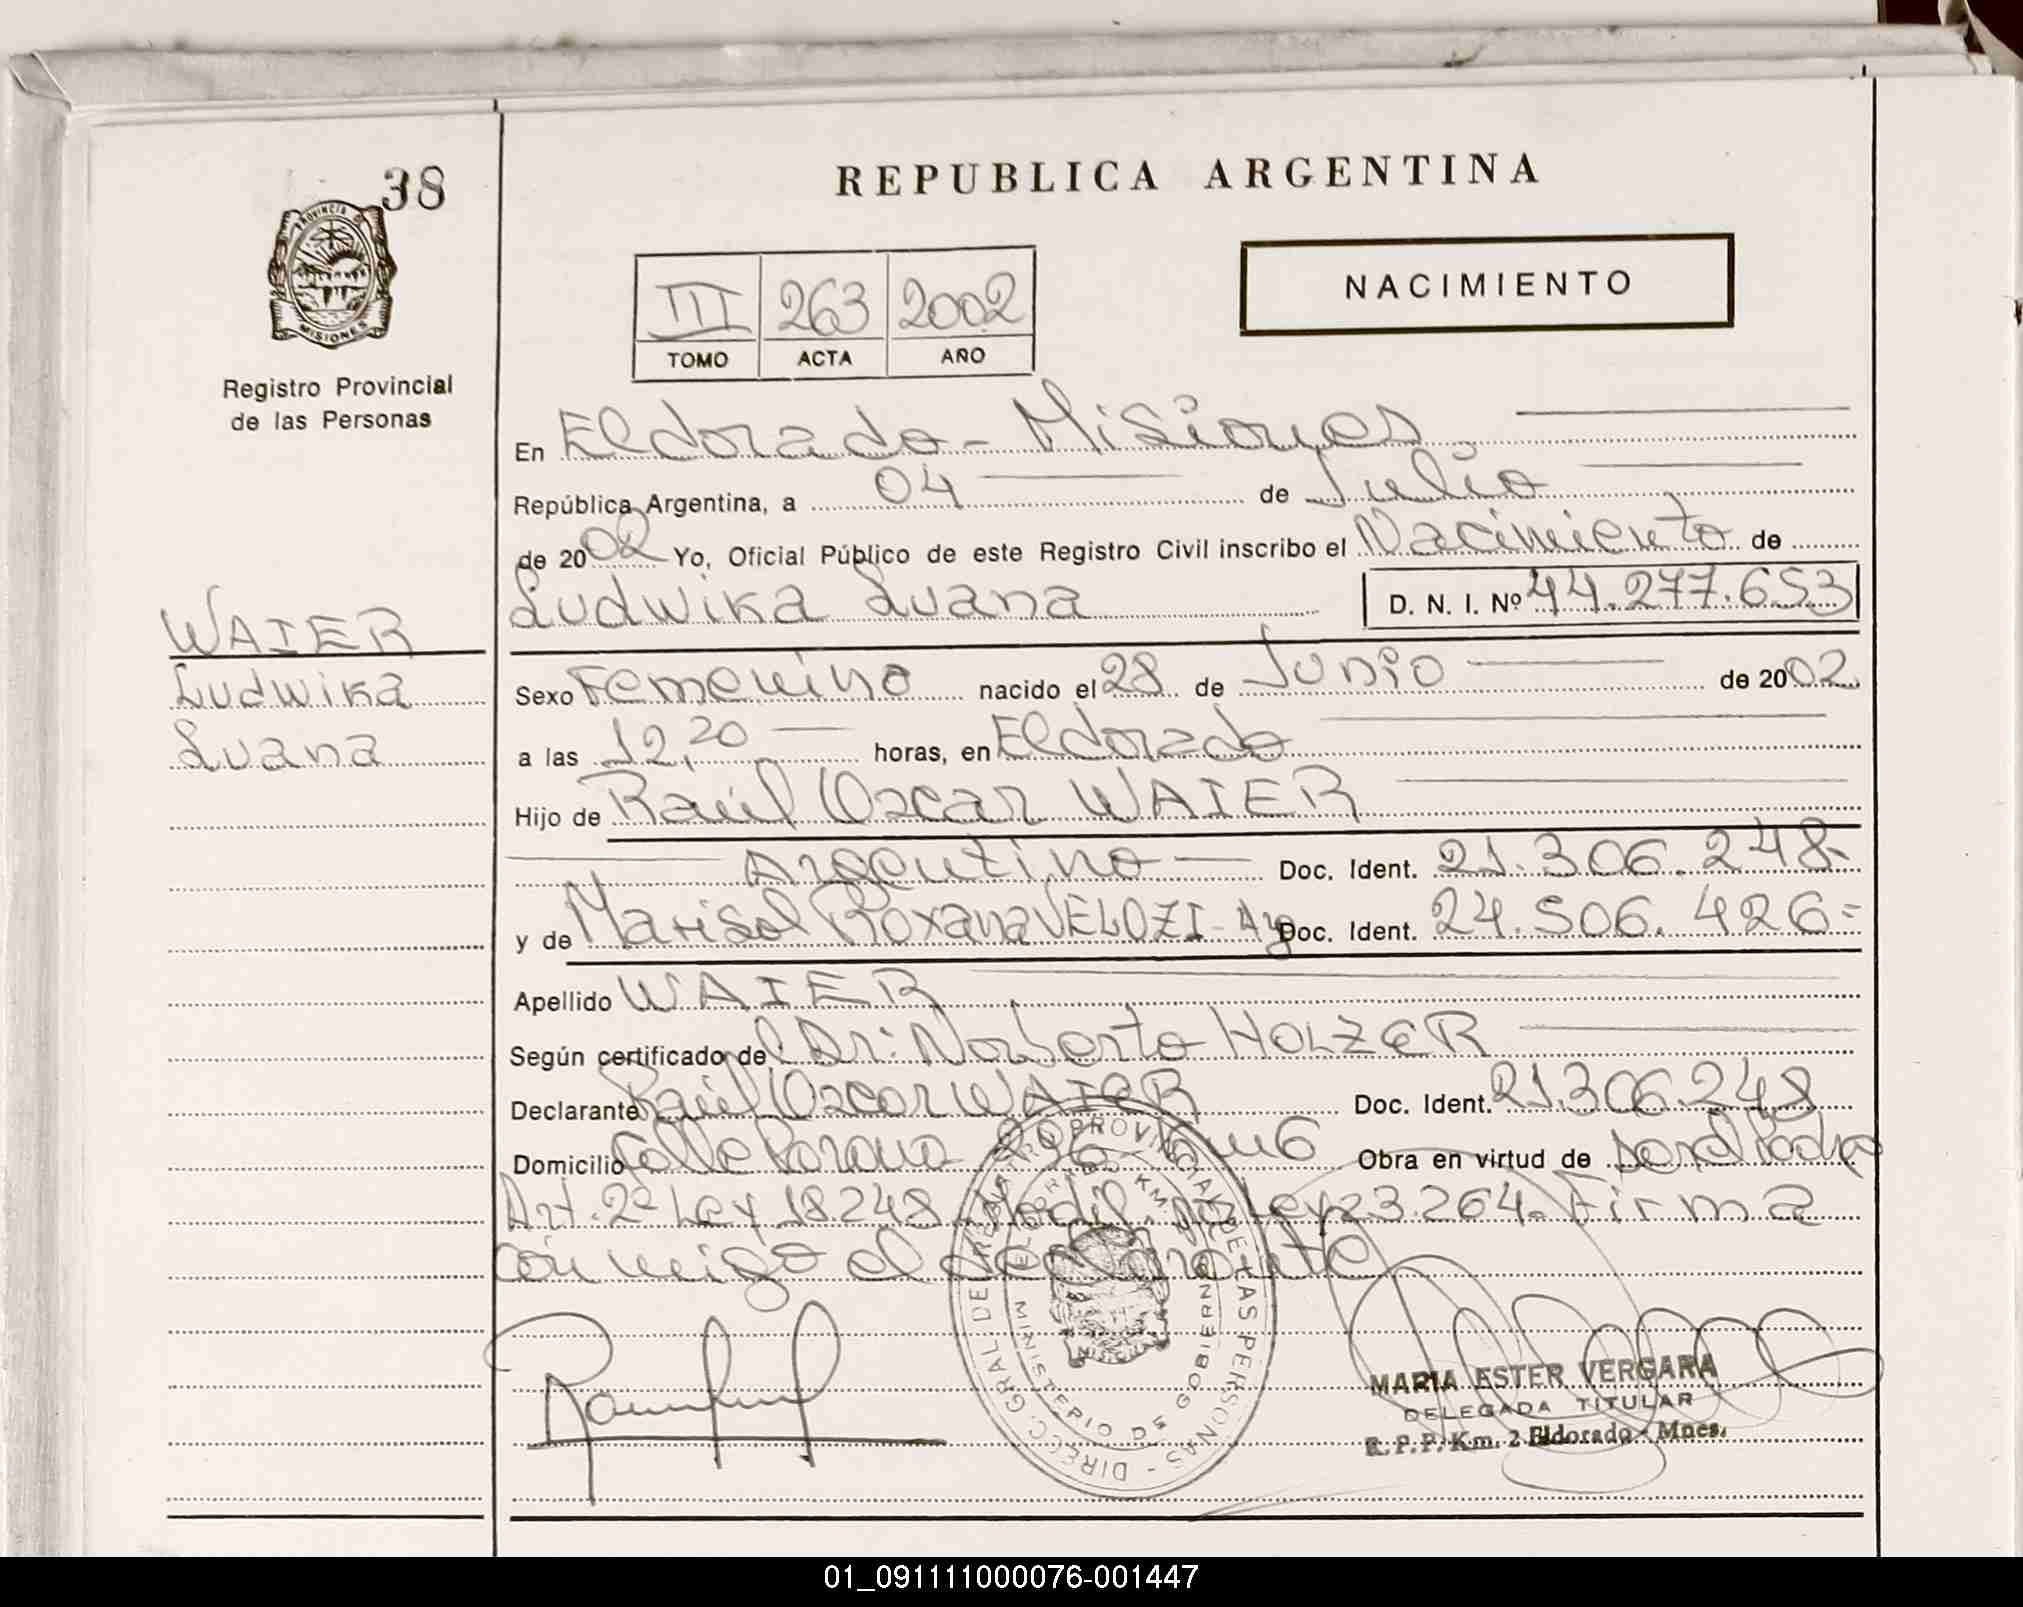 38
REPUBLICA ARGENTINA
PROVINCIA DE
MISIONES
Registro Provincial
de las Personas
III 263 2002
TOMO ACTA AÑO
NACIMIENTO
En Eldorado - Misiones
República Argentina, a 04 de Julio
de 2002 Yo, Oficial Público de este Registro Civil inscribo el Nacimiento de
Ludwika Luana D. N. I. Nº 44.277.653
WAIER
Ludwika
Luana
Sexo Femenino nacido el 28 de Junio de 2002
a las 12,20 horas, en Eldorado
Hijo de Raúl Oscar WAIER
Argentino Doc. Ident. 21.306.248-
y de Marisol Roxana VELOZI - Arg Doc. Ident. 24.506.426=
Apellido WAIER
Según certificado de Dr: Norberto HOLZER
Declarante Raúl Oscar WAIER Doc. Ident. 21.306.248
Domicilio Calle 296 Obra en virtud de
Art. 2º Ley 18248 Modif. Ley 23.264. Firma
conmigo el declarante
DIRECC. GRAL. DE REGISTRO PROVINCIAL DE LAS PERSONAS
MINISTERIO DE GOBIERNO
MISIONES
MARIA ESTER VERGARA
DELEGADA TITULAR
R. P. P. Km. 2 Eldorado - Mnes.
01_091111000076-001447